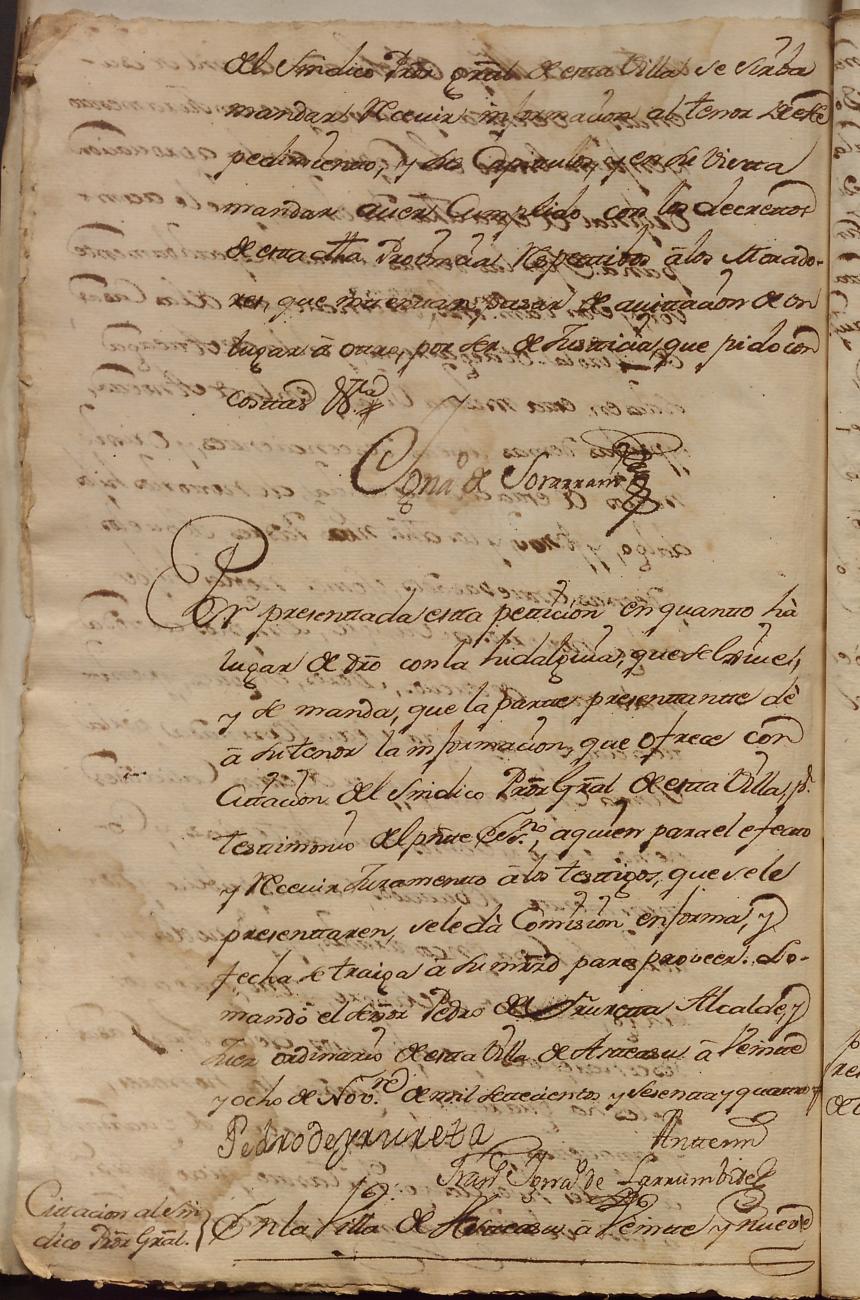 del Sindico Pror gral de esta Villa se sirba
mandar Recevir informacion al tenor de este
pedimiento, y sus Capitulos, y en su Vista
mandar aver Cumplido con los decretos
de esta dha Provincial Respectivos â los Morado-
res, que intentan pasar de avitacion de un
lugar â otro, por ser de Justicia, que pido con
costas Vª
Ygnaº de Sorarrain
Por presenttada esta petticion en quantto hà
lugar de dro con la hidalguia, que se
y se manda, que la partte presenttantte dè
â su tenor la informacion, que ofrece con
Cittacion del Sindico Pror Gral de esta Villa, pr
testtimonio del pntte Essno, a quien para el efectto
y Recevir Juramentto â los testtigos, que se le
presenttaren, se le dà Comision en forma, y
fecha se traiga â su mrd para proveer. Lo
mandò el Señor Pedro de Yruretta Alcalde, y
Juez ordinario de esta Villa de à Veintte
y ocho de Novre de mil settecienttos y sesentta y quattro
Pedro de yrureta
Antte mi
Franº Ignaº de Larrumbide
Cittacion al Sin
dico Pror Gral.
En la Villa de à Veintte y nueve